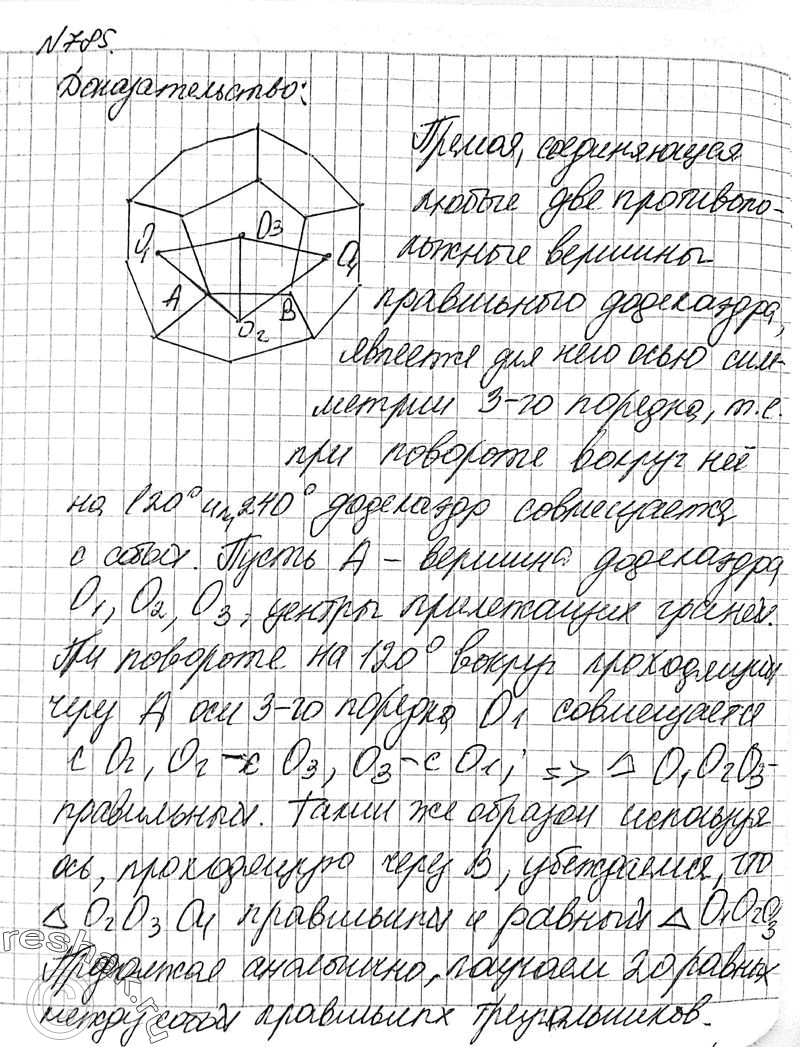 N785.
Доказательство:
Прямая, соединяющая
любые две противопо-
ложные вершины
правильного додекаэдра,
является для него осью сим-
метрии 3-го порядка, т.е.
при повороте вокруг неё
на 120° и 240° додекаэдр совмещается
с собой. Пусть A – вершина додекаэдра
O1, O2, O3, центры прилежащих граней.
При повороте на 120° вокруг проходящий
через A оси 3-го порядка O1 совмещается
с O2, O2 – с O3, O3 – с O1; => △ O1O2O3 –
правильный. Таким же образом используя
ось, проходящую через B, убеждаемся, что
△ O2O3O4 правильный и равный △ O1O2O3
Продолжая аналогично, получаем 20 равных
между собой правильных треугольников.
O1
O3
O4
A
B
O2
reshak.ru
©